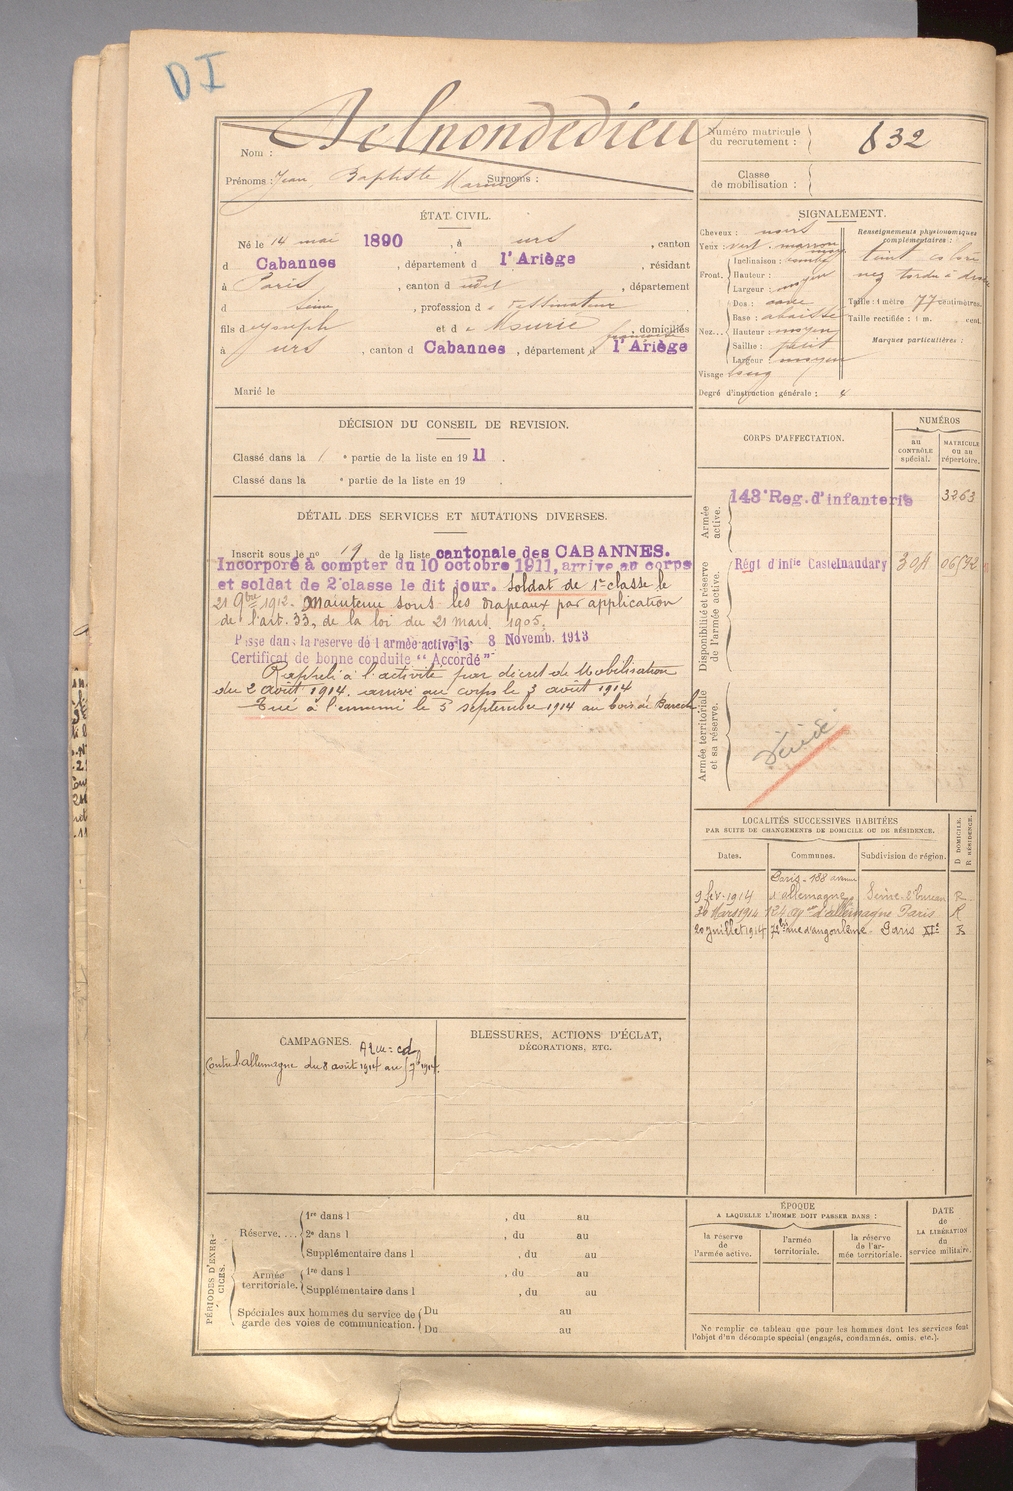 DI
Nom : Delnondedieu
Prénoms : Jean Baptiste Surnoms :
Numéro matricule du recrutement : 832
Classe de mobilisation :
ÉTAT CIVIL.
Né le 14 mai 1890, à urs, canton
d Cabannes, département d l'Ariège, résidant
à Paris, canton d udit, département
d Seine, profession d e dessinateur
fils d e Joseph et d e Mourié françoise, domiciliés
à urs, canton d Cabannes, département d l'Ariège
Marié le
SIGNALEMENT.
Cheveux : noirs
Yeux : vert marron moy
Front. Inclinaison :
Hauteur : moyen
Largeur : moyen
Nez... Dos : cave
Base : abaissé
Hauteur : moyen
Saillie : petit
Largeur : moyen
Visage long
Renseignements physionomiques complémentaires :
teint coloré
nez tordu à droite
Taille : 1 mètre 77 centimètres.
Taille rectifiée : 1 m. cent.
Marques particulières :
Degré d'instruction générale : 4
DÉCISION DU CONSEIL DE REVISION.
Classé dans la 1 e partie de la liste en 19 11.
Classé dans la e partie de la liste en 19 .
DÉTAIL DES SERVICES ET MUTATIONS DIVERSES.
Inscrit sous le no 19 de la liste cantonale des CABANNES.
Incorporé à compter du 10 octobre 1911, arrive au corps
et soldat de 2e classe le dit jour. Soldat de 1re classe le
21 9bre 1912. Maintenu sous les drapeaux par application
de l'art. 33, de la loi du 21 mars 1905.
Passe dans la reserve de l'armée active le 8 Novemb. 1913
Certificat de bonne conduite "Accordé"
Rappelé à l'activité par décret de Mobilisation
du 2 août 1914. arrivé au corps le 3 août 1914
Tué à l'ennemi le 5 septembre 1914 au bois de
CORPS D'AFFECTATION.
NUMÉROS
au contrôle spécial.
MATRICULE ou au répertoire.
Armée active.
143e Reg. d'infanterie 3263
Disponibilité et réserve de l'armée active.
Régt d'infie Castelnaudary
Armée territoriale et sa réserve.
Décédé
LOCALITÉS SUCCESSIVES HABITÉES
PAR SUITE DE CHANGEMENTS DE DOMICILE OU DE RÉSIDENCE.
Dates. Communes. Subdivision de région. D. DOMICILE. R. RÉSIDENCE.
9 fév. 1914 Paris - 188 avenue d'allemagne Seine. 8e bureau R
Mars 1914 124 av d'allemagne Paris R
20 juillet 1914 72 bis rue d'angoulême Paris XIe R
CAMPAGNES.
Contre l'allemagne du 8 août 1914 au 5 7bre 1914.
BLESSURES, ACTIONS D'ÉCLAT,
DÉCORATIONS, ETC.
PÉRIODES D'EXERCICES.
Réserve.... 1re dans l , du au
2e dans l , du au
Supplémentaire dans l , du au
Armée territoriale. 1re dans l , du au
Supplémentaire dans l , du au
Spéciales aux hommes du service de garde des voies de communication. Du au
Du au
ÉPOQUE
A LAQUELLE L'HOMME DOIT PASSER DANS :
la réserve de l'armée active.
l'armée territoriale.
la réserve de l'armée territoriale.
DATE de LA LIBÉRATION du service militaire.
Ne remplir ce tableau que pour les hommes dont les services font
l'objet d'un décompte spécial (engagés, condamnés, omis, etc.).